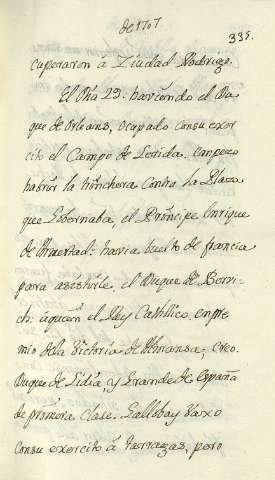 de 1707
335.
cuperaron à Ciudad Rodrigo.
El Dia 29. haviendo el Du
que de Orleans, ocupado consu exer
cito el Campo de Lerida, empezo
habrir la trinchera contra la Plaza
que Gobernaba, el Principe Enrique
de Armestad: havia buelto de francia
para asistirle, el Duque de Bervi-
ch: aquien el Rey Catholico, enpre
mio dela Victoria de Almansa, creo
Duque de Liria, y Grande de España
de primera clase. Gallobay vaxo
consu exercito á tarragas, pero